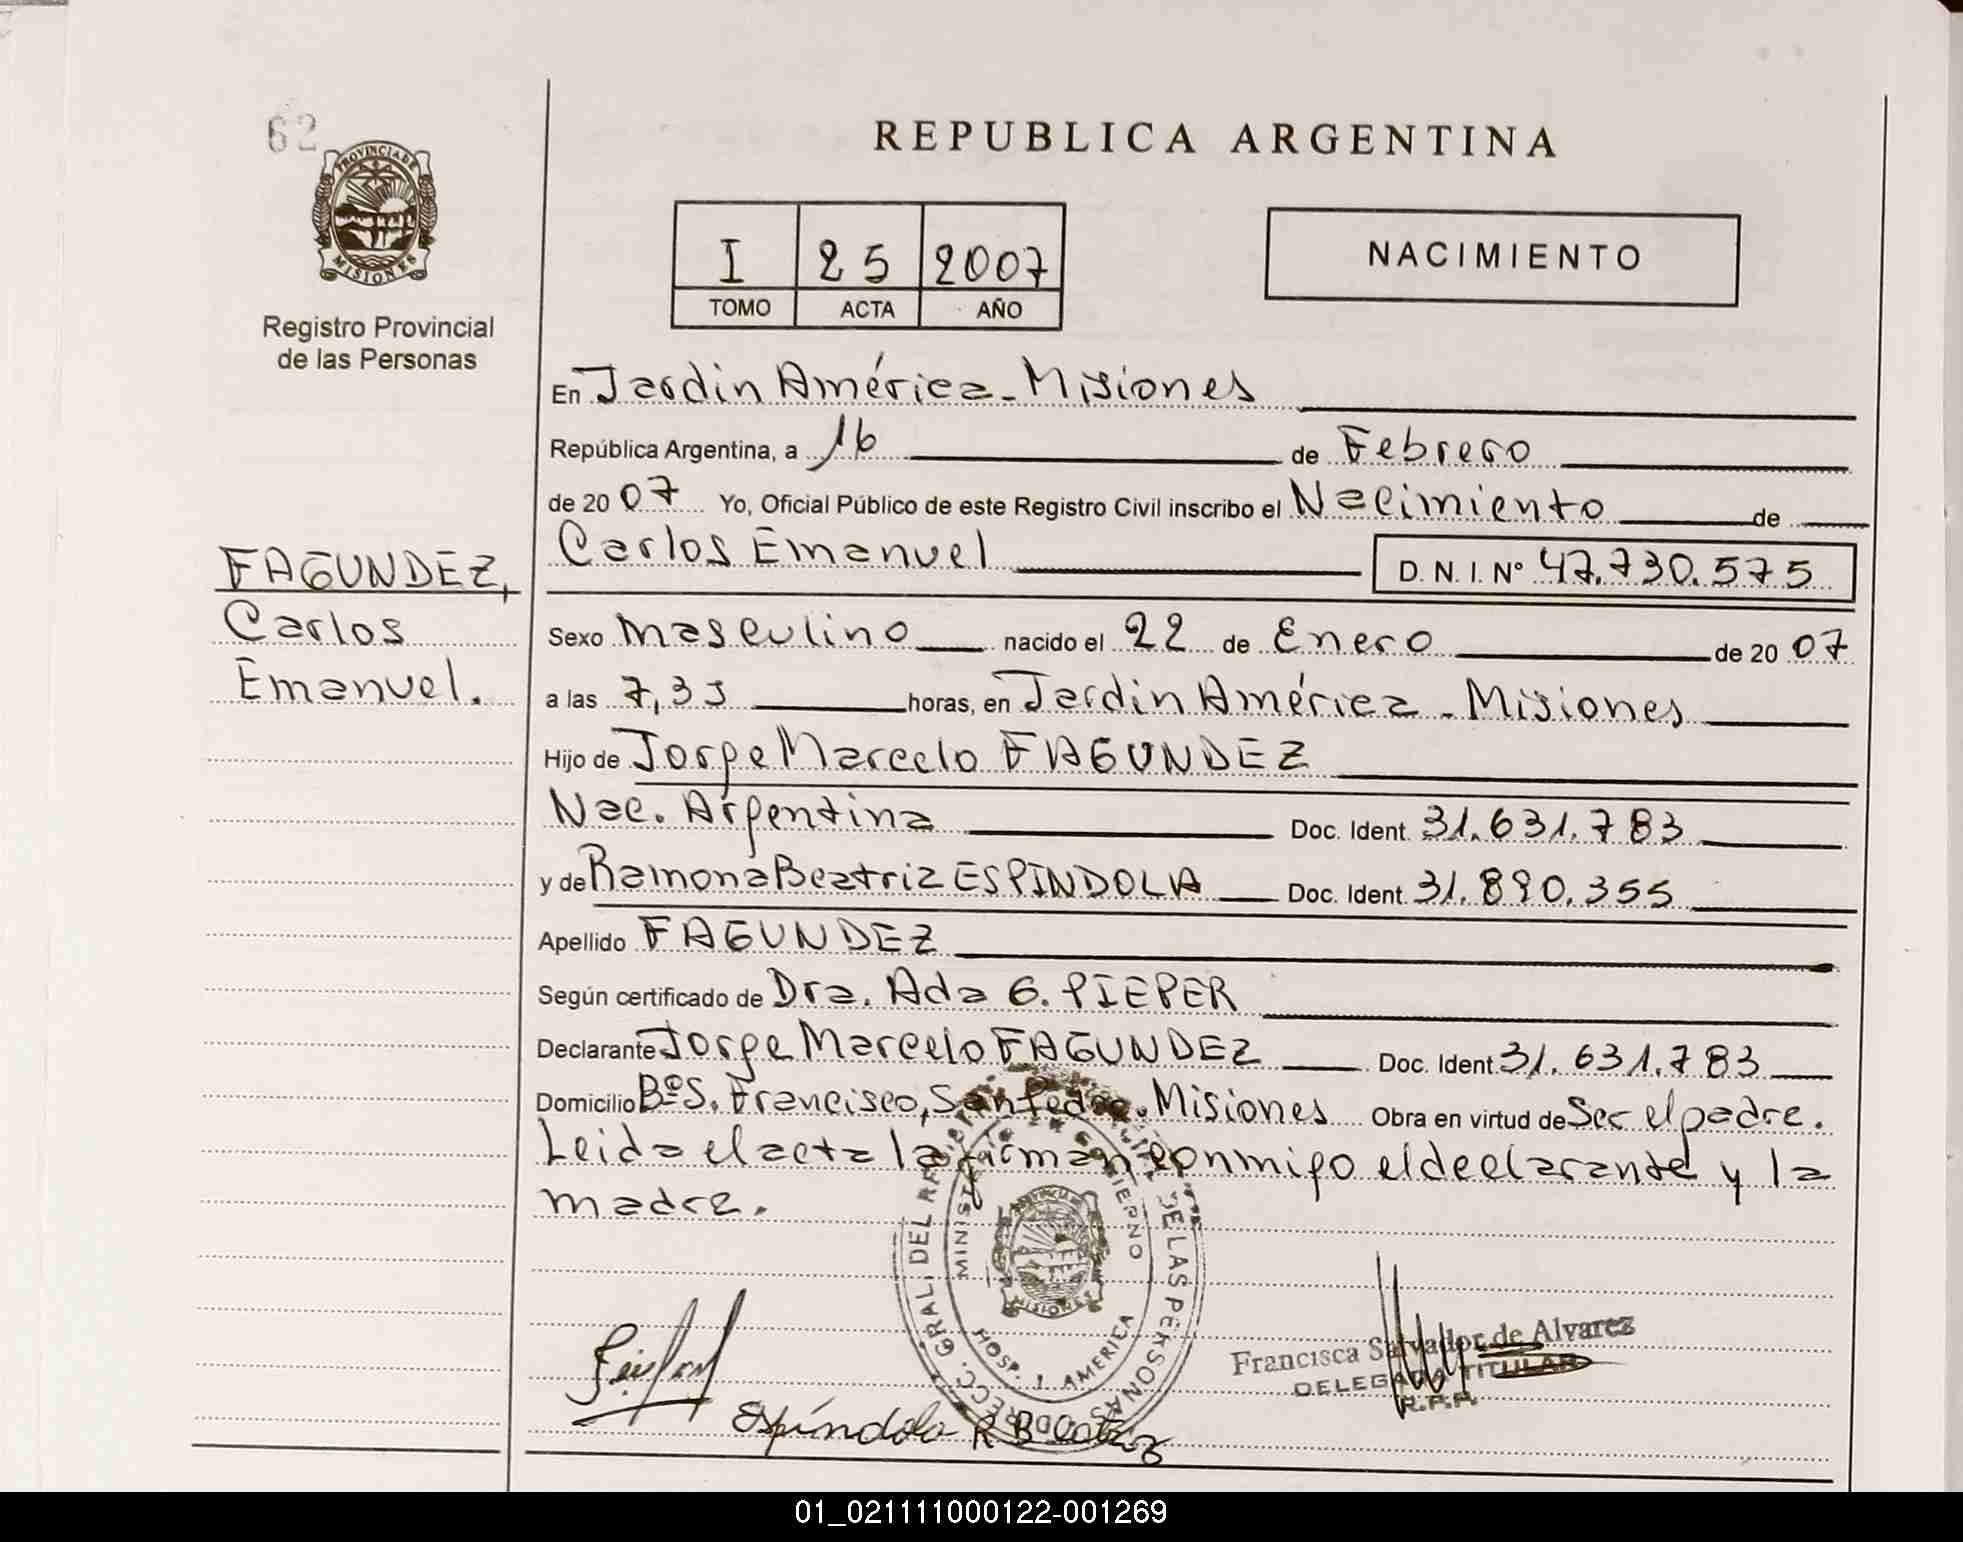 62
PROVINCIA DE
MISIONES
Registro Provincial
de las Personas
REPUBLICA ARGENTINA
I 25 2007
TOMO ACTA AÑO
NACIMIENTO
FAGUNDEZ,
Carlos
Emanuel.
En Jardín América - Misiones
República Argentina, a 16 de Febrero
de 2007 Yo, Oficial Público de este Registro Civil inscribo el Nacimiento de
Carlos Emanuel D. N. I. Nº 47.730.575
Sexo masculino nacido el 22 de Enero de 2007
a las 7,35 horas, en Jardín América - Misiones
Hijo de Jorge Marcelo FAGUNDEZ
Nac. Argentina Doc. Ident. 31.631.783
y de Ramona Beatriz ESPINDOLA Doc. Ident. 31.890.355
Apellido FAGUNDEZ
Según certificado de Dra. Ada G. PIEPER
Declarante Jorge Marcelo FAGUNDEZ Doc. Ident. 31.631.783
Domicilio Bº S. Francisco, San Pedro. Misiones Obra en virtud de Ser el padre.
Leida el acta la firman conmigo el declarante y la
madre.
DE LAS PERSONAS
HOSP. J. AMERICA
MISIONES
Francisca Salvador de Alvarez
DELEGADA TITULAR
R.P.P.
Espíndola R B
01_021111000122-001269